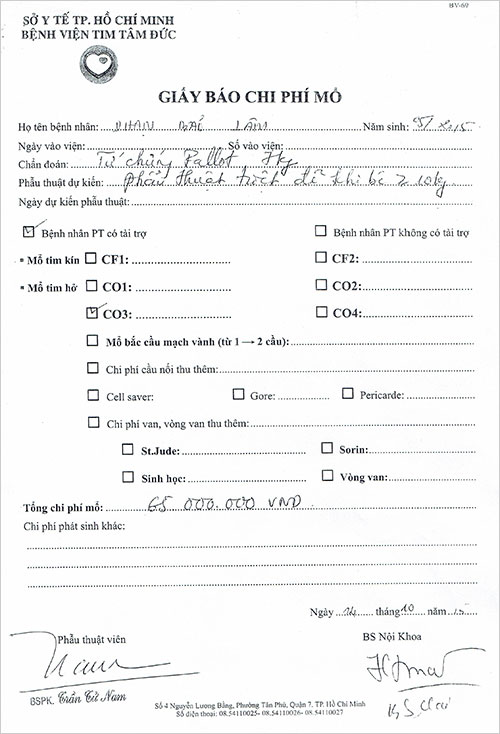 BV-69
SỞ Y TẾ TP. HỒ CHÍ MINH
BỆNH VIỆN TIM TÂM ĐỨC
GIẤY BÁO CHI PHÍ MỔ
Họ tên bệnh nhân: PHAN BÁ LÂM Năm sinh: 05/2015
Ngày vào viện: Số vào viện:
Chẩn đoán: Tứ chứng Fallot 7kg
Phẫu thuật dự kiến: phẫu thuật triệt để khi bé ≥ 10kg
Ngày dự kiến phẫu thuật:
Bệnh nhân PT có tài trợ Bệnh nhân PT không có tài trợ
▪ Mổ tim kín CF1: CF2:
▪ Mổ tim hở CO1: CO2:
CO3: CO4:
Mổ bắc cầu mạch vành (từ 1 → 2 cầu):
Chi phí cầu nối thu thêm:
Cell saver: Gore: Pericarde:
Chi phí van, vòng van thu thêm:
St.Jude: Sorin:
Sinh học: Vòng van:
Tổng chi phí mổ: 65 000.000 VND
Chi phí phát sinh khác:
Ngày 14 tháng 10 năm 15
Phẫu thuật viên BS Nội Khoa
BSPK. Trần Tử Nam
Số 4 Nguyễn Lương Bằng, Phường Tân Phú, Quận 7. TP. Hồ Chí Minh
Số điện thoại: 08.54110025- 08.54110026- 08.54110027